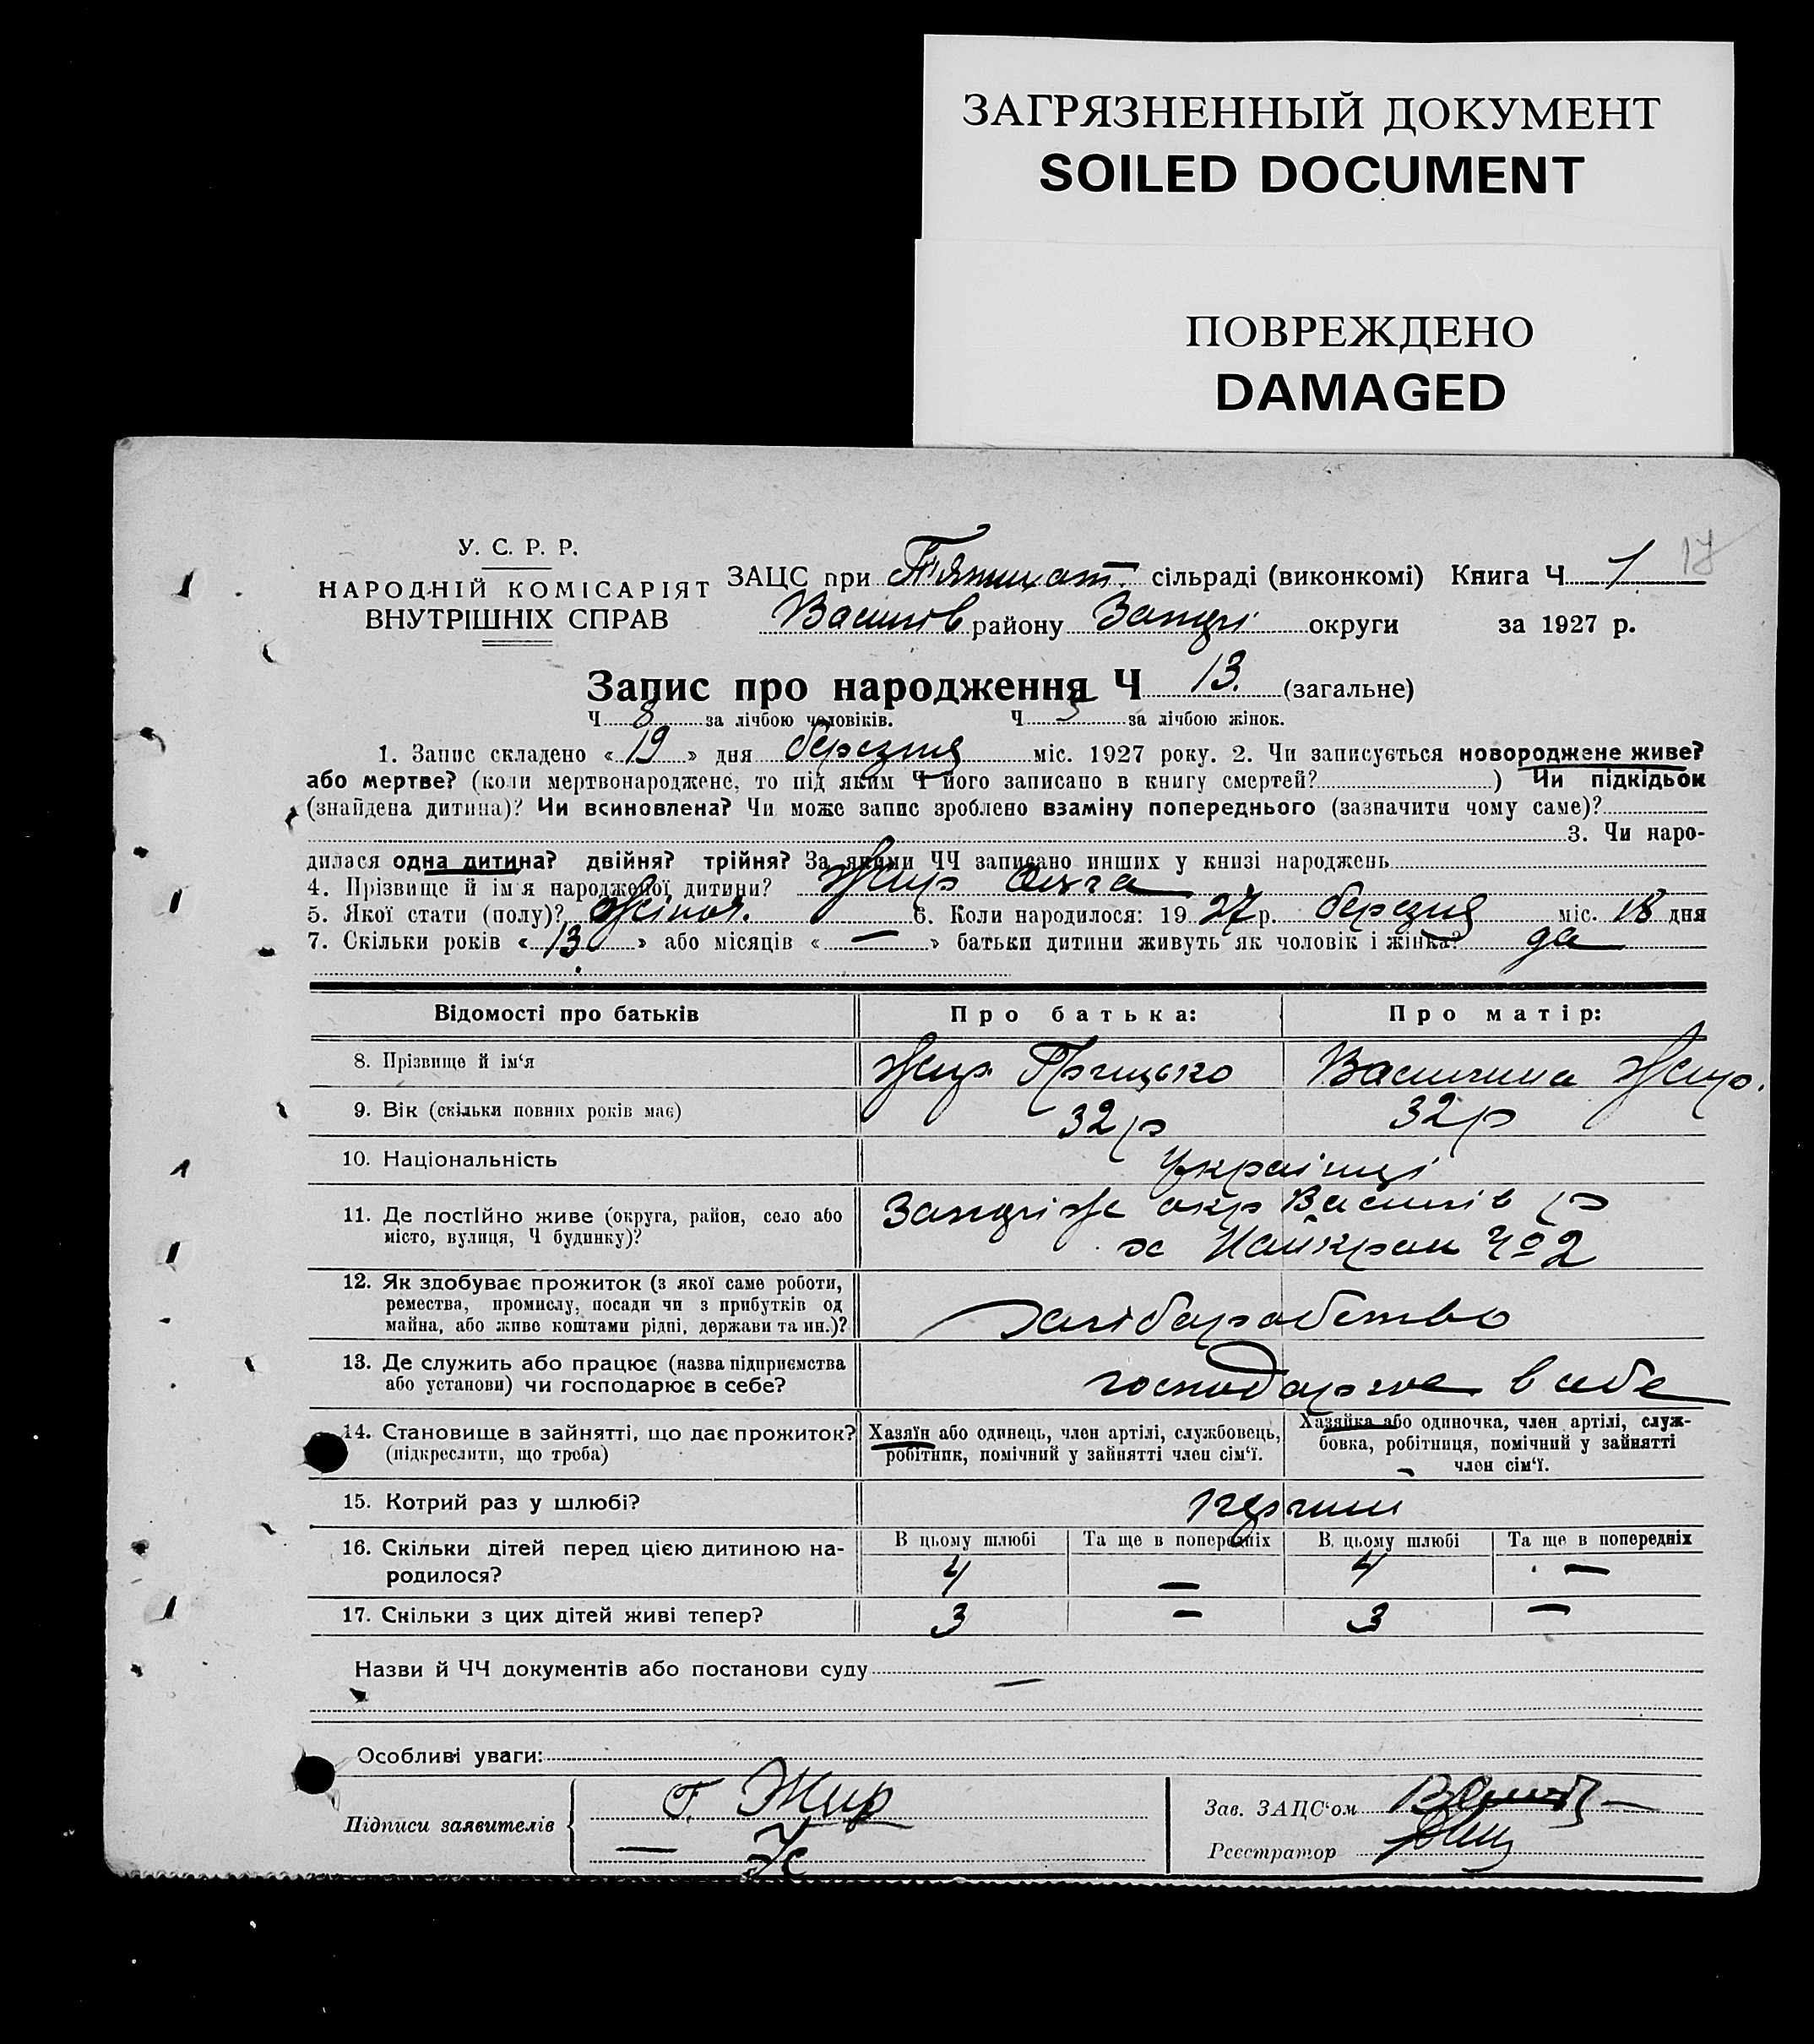 ЗАГРЯЗНЕННЫЙ ДОКУМЕНТ
SOILED DOCUMENT
ПОВРЕЖДЕНО
DAMAGED
17
У. С. Р. Р.
НАРОДНІЙ КОМІСАРІЯТ
ВНУТРІШНІХ СПРАВ
ЗАЦС при сільраді (виконкомі) Книга Ч 1
Василів району Запоріз округи за 1927 р.
Запис про народження Ч 13. (загальне)
Ч 8 за лічбою чоловіків. Ч 5 за лічбою жінок.
1. Запис складено «19» дня березня міс. 1927 року. 2. Чи записується новороджене живе?
або мертве? (коли мертвонароджене, то під яким Ч його записано в книгу смертей? ) Чи підкідьок
(знайдена дитина)? Чи всиновлена? Чи може запис зроблено взаміну попереднього (зазначити чому саме)?
3. Чи наро-
дилася одна дитина? двійня? трійня? За якими ЧЧ записано инших у книзі народжень
4. Прізвище й ім'я народженої дитини? Жир Ольга
5. Якої стати (полу)? Жіноч. 6. Коли народилося: 1927 р. березня міс. 18 дня
7. Скільки років «13» або місяців «—» батьки дитини живуть як чоловік і жінка? да
Відомості про батьків Про батька: Про матір:
8. Прізвище й ім'я Жир Грицько Василина Жир.
9. Вік (скільки повних років має) 32 р 32 р
10. Національність Українці
11. Де постійно живе (округа, район, село або
місто, вулиця, Ч будинку)?
Запоріж окр Василів р
х Найкрам №2
12. Як здобуває прожиток (з якої саме роботи,
ремества, промислу, посади чи з прибутків од
майна, або живе коштами рідні, держави та ин.)?
хліборобство
13. Де служить або працює (назва підприємства
або установи) чи господарює в себе?
господарює в себе
14. Становище в зайнятті, що дає прожиток?
(підкреслити, що треба)
Хазяїн або одинець, член артілі, службовець,
робітник, помічний у зайнятті член сім'ї.
Хазяйка або одиночка, член артілі, служ-
бовка, робітниця, помічний у зайнятті
член сім'ї.
15. Котрий раз у шлюбі? перший
16. Скільки дітей перед цією дитиною на-
родилося?
В цьому шлюбі Та ще в попередніх В цьому шлюбі Та ще в попередніх
4 — 4 —
17. Скільки з цих дітей живі тепер? 3 — 3 —
Назви й ЧЧ документів або постанови суду —
Особливі уваги:
Підписи заявителів
Г. Жир
Зав. ЗАЦС'ом
Реєстратор